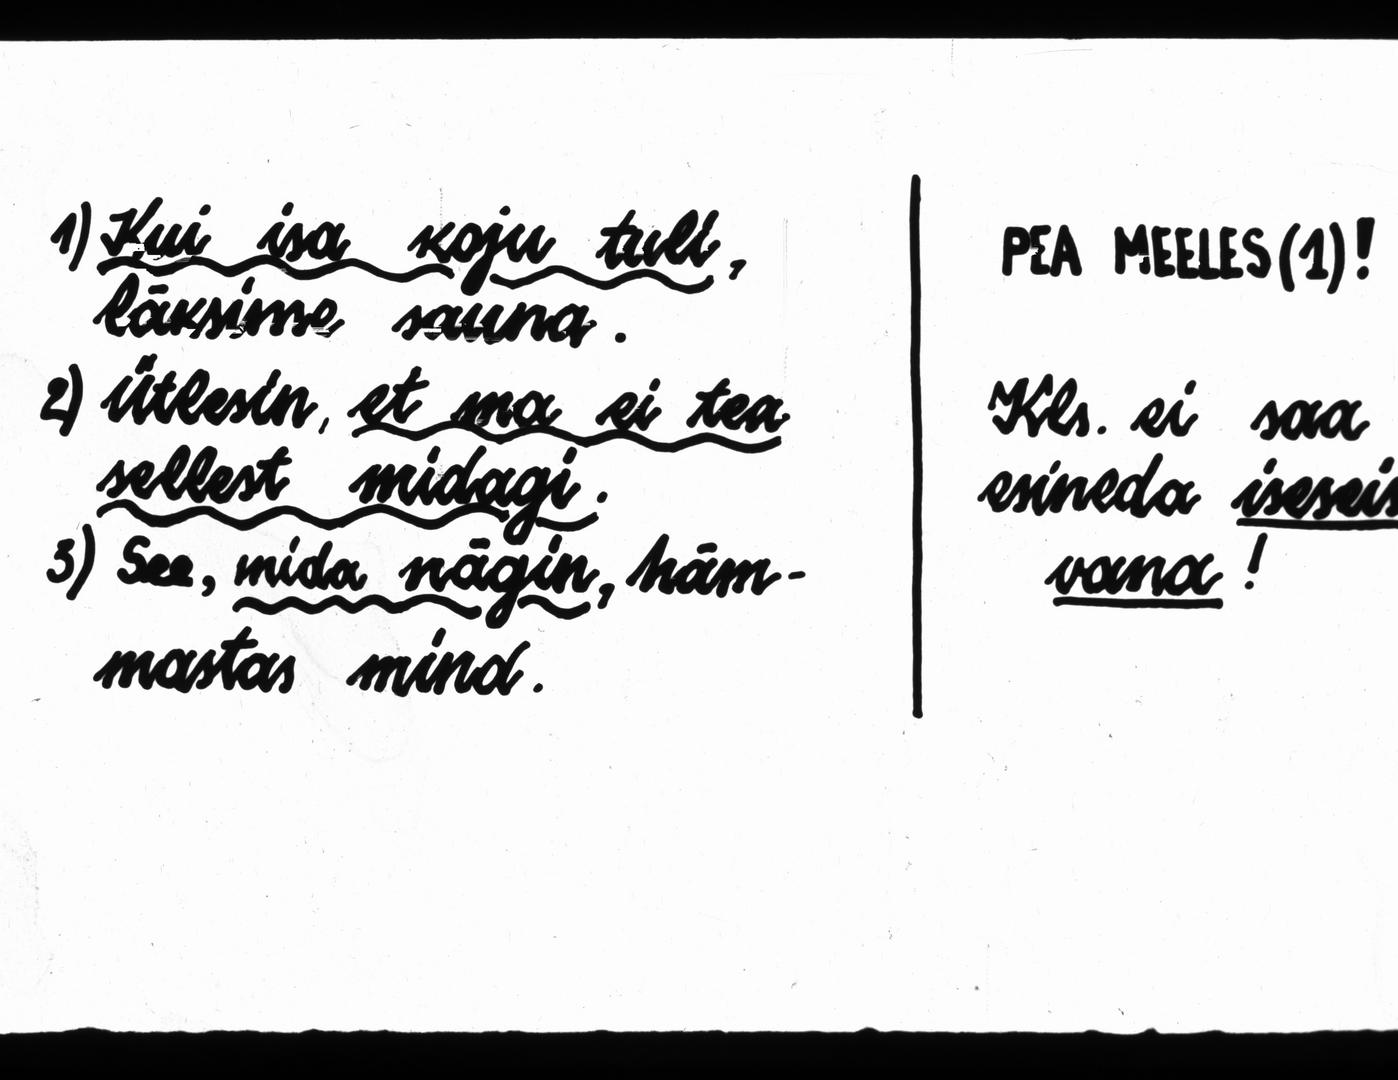 1) Kui isa koju tuli,
läksime sauna.
2) Ütlesin, et ma ei tea
sellest midagi.
3) See, mida nägin, häm-
mastas mind.
PEA MEELES (1)!
Kls. ei saa
esineda iseseis
vana!